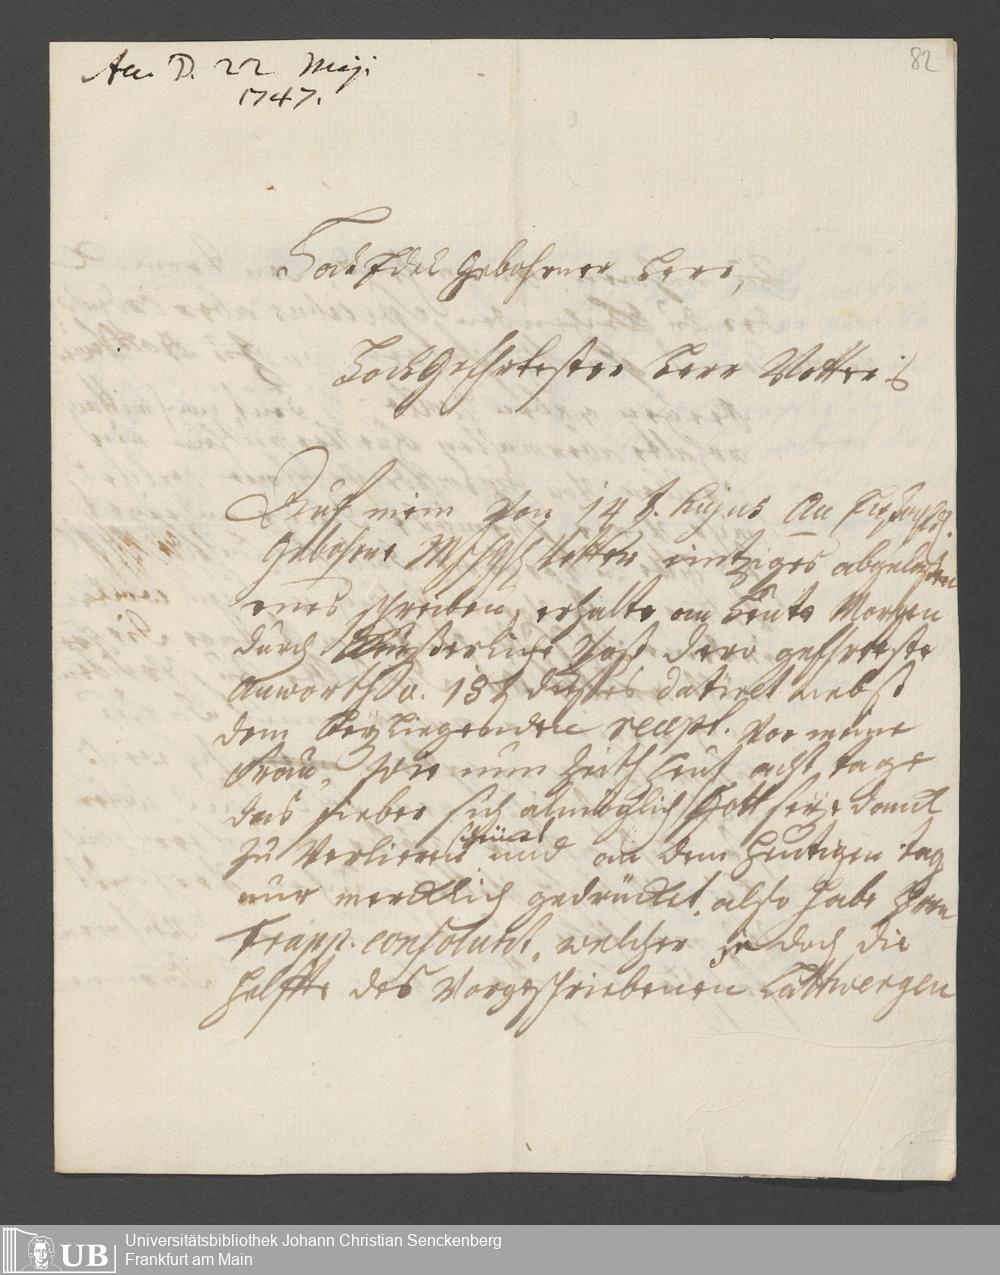 Acc. D. 22 Maji
1747.
82
HochEdel Gebohrner Herr,
HochGeEhrtester Herr Vetter
Auf mein von 14 t. hujus An
Gebohrne Vetter eintziges abgelaßen
enes schreiben, erhalte an heute Morgen
durch Post dero geEhrteste
Anworth 18 t dießes datiret nebst
dem beyliegenden recept. vor meine
Frau, wie nun Zeith acht tage
das fieber sich almählich Gott seye danck
zu verlieren und an dem heutigen tag
nur mercklich gedrücket, also habe
Trapp. consoluirt, welcher je doch die
helffte des Vorgeschriebenen Lattwergen
UB
Universitätsbibliothek Johann Christian Senckenberg
Frankfurt am Main